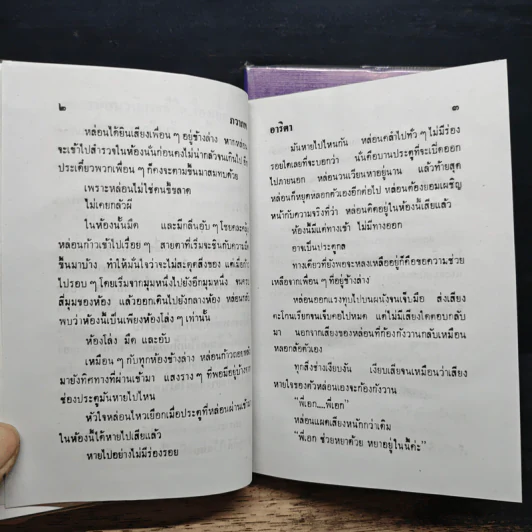 ๒
ภวาภพ
หล่อนได้ยินเสียงเพื่อน ๆ อยู่ข้างล่าง หากหล่อน
จะเข้าไปสำรวจในห้องนั้นก่อนคงไม่น่ากลัวจนเกินไป
ประเดี๋ยวพวกเพื่อน ๆ ก็คงจะตามขึ้นมาสมทบด้วย
เพราะหล่อนไม่ใช่คนขี้ขลาด
ไม่เคยกลัวผี
ในห้องนั้นมืด และมีกลิ่นอับ ๆ โชยคละคลุ้ง
หล่อนก้าวเข้าไปเรื่อย ๆ สายตาที่เริ่มจะชินกับความมืด
ขึ้นมาบ้าง ทำให้มั่นใจว่าจะไม่สะดุดสิ่งของ แต่เมื่อก้าว
ไปรอบ ๆ โดยเริ่มจากมุมหนึ่งไปยังอีกมุมหนึ่ง จนครบ
สี่มุมของห้อง แล้วออกเดินไปยังกลางห้อง หล่อนกลับ
พบว่าห้องนี้เป็นเพียงห้องโล่ง ๆ เท่านั้น
ห้องโล่ง มืด และอับ
เหมือน ๆ กับทุกห้องข้างล่าง หล่อนก้าวถอยหลัง
มายังทิศทางที่ผ่านเข้ามา แสงราง ๆ ที่พอมีอยู่บ้างจาก
ช่องประตูมันหายไปไหน
หัวใจหล่อนไหวเยือกเมื่อประตูที่หล่อนผ่านเข้ามา
ในห้องนี้ได้หายไปเสียแล้ว
หายไปอย่างไม่มีร่องรอย
อาริตา
๓
มันหายไปไหนกัน หล่อนคลำไปทั่ว ๆ ไม่มีร่อง
รอยใดเลยที่จะบอกว่า นั่นคือบานประตูที่จะเปิดออก
ไปภายนอก หล่อนวนเวียนหาอยู่นาน แล้วท้ายสุด
หล่อนก็หยุดหลอกตัวเองอีกต่อไป หล่อนต้องยอมเผชิญ
หน้ากับความจริงที่ว่า หล่อนติดอยู่ในห้องนี้เสียแล้ว
ห้องนี้มีแต่ทางเข้า ไม่มีทางออก
อาจเป็นประตูกล
ทางเดียวที่ยังพอจะหลงเหลืออยู่ก็คือขอความช่วย
เหลือจากเพื่อน ๆ ที่อยู่ข้างล่าง
หล่อนออกแรงทุบไปบนผนังจนเจ็บมือ ส่งเสียง
ตะโกนเรียกจนเจ็บคอไปหมด แต่ไม่มีเสียงใดตอบกลับ
มา นอกจากเสียงของหล่อนที่ก้องกังวานกลับเหมือน
หลอกล้อตัวเอง
ทุกสิ่งช่างเงียบงัน เงียบเสียจนเหมือนว่าเสียง
หายใจของตัวหล่อนเองจะก้องกังวาน
“พี่เอก....พี่เอก”
หล่อนแผดเสียงหนักกว่าเดิม
“พี่เอก ช่วยหยาด้วย หยาอยู่ในนี้ค่ะ”